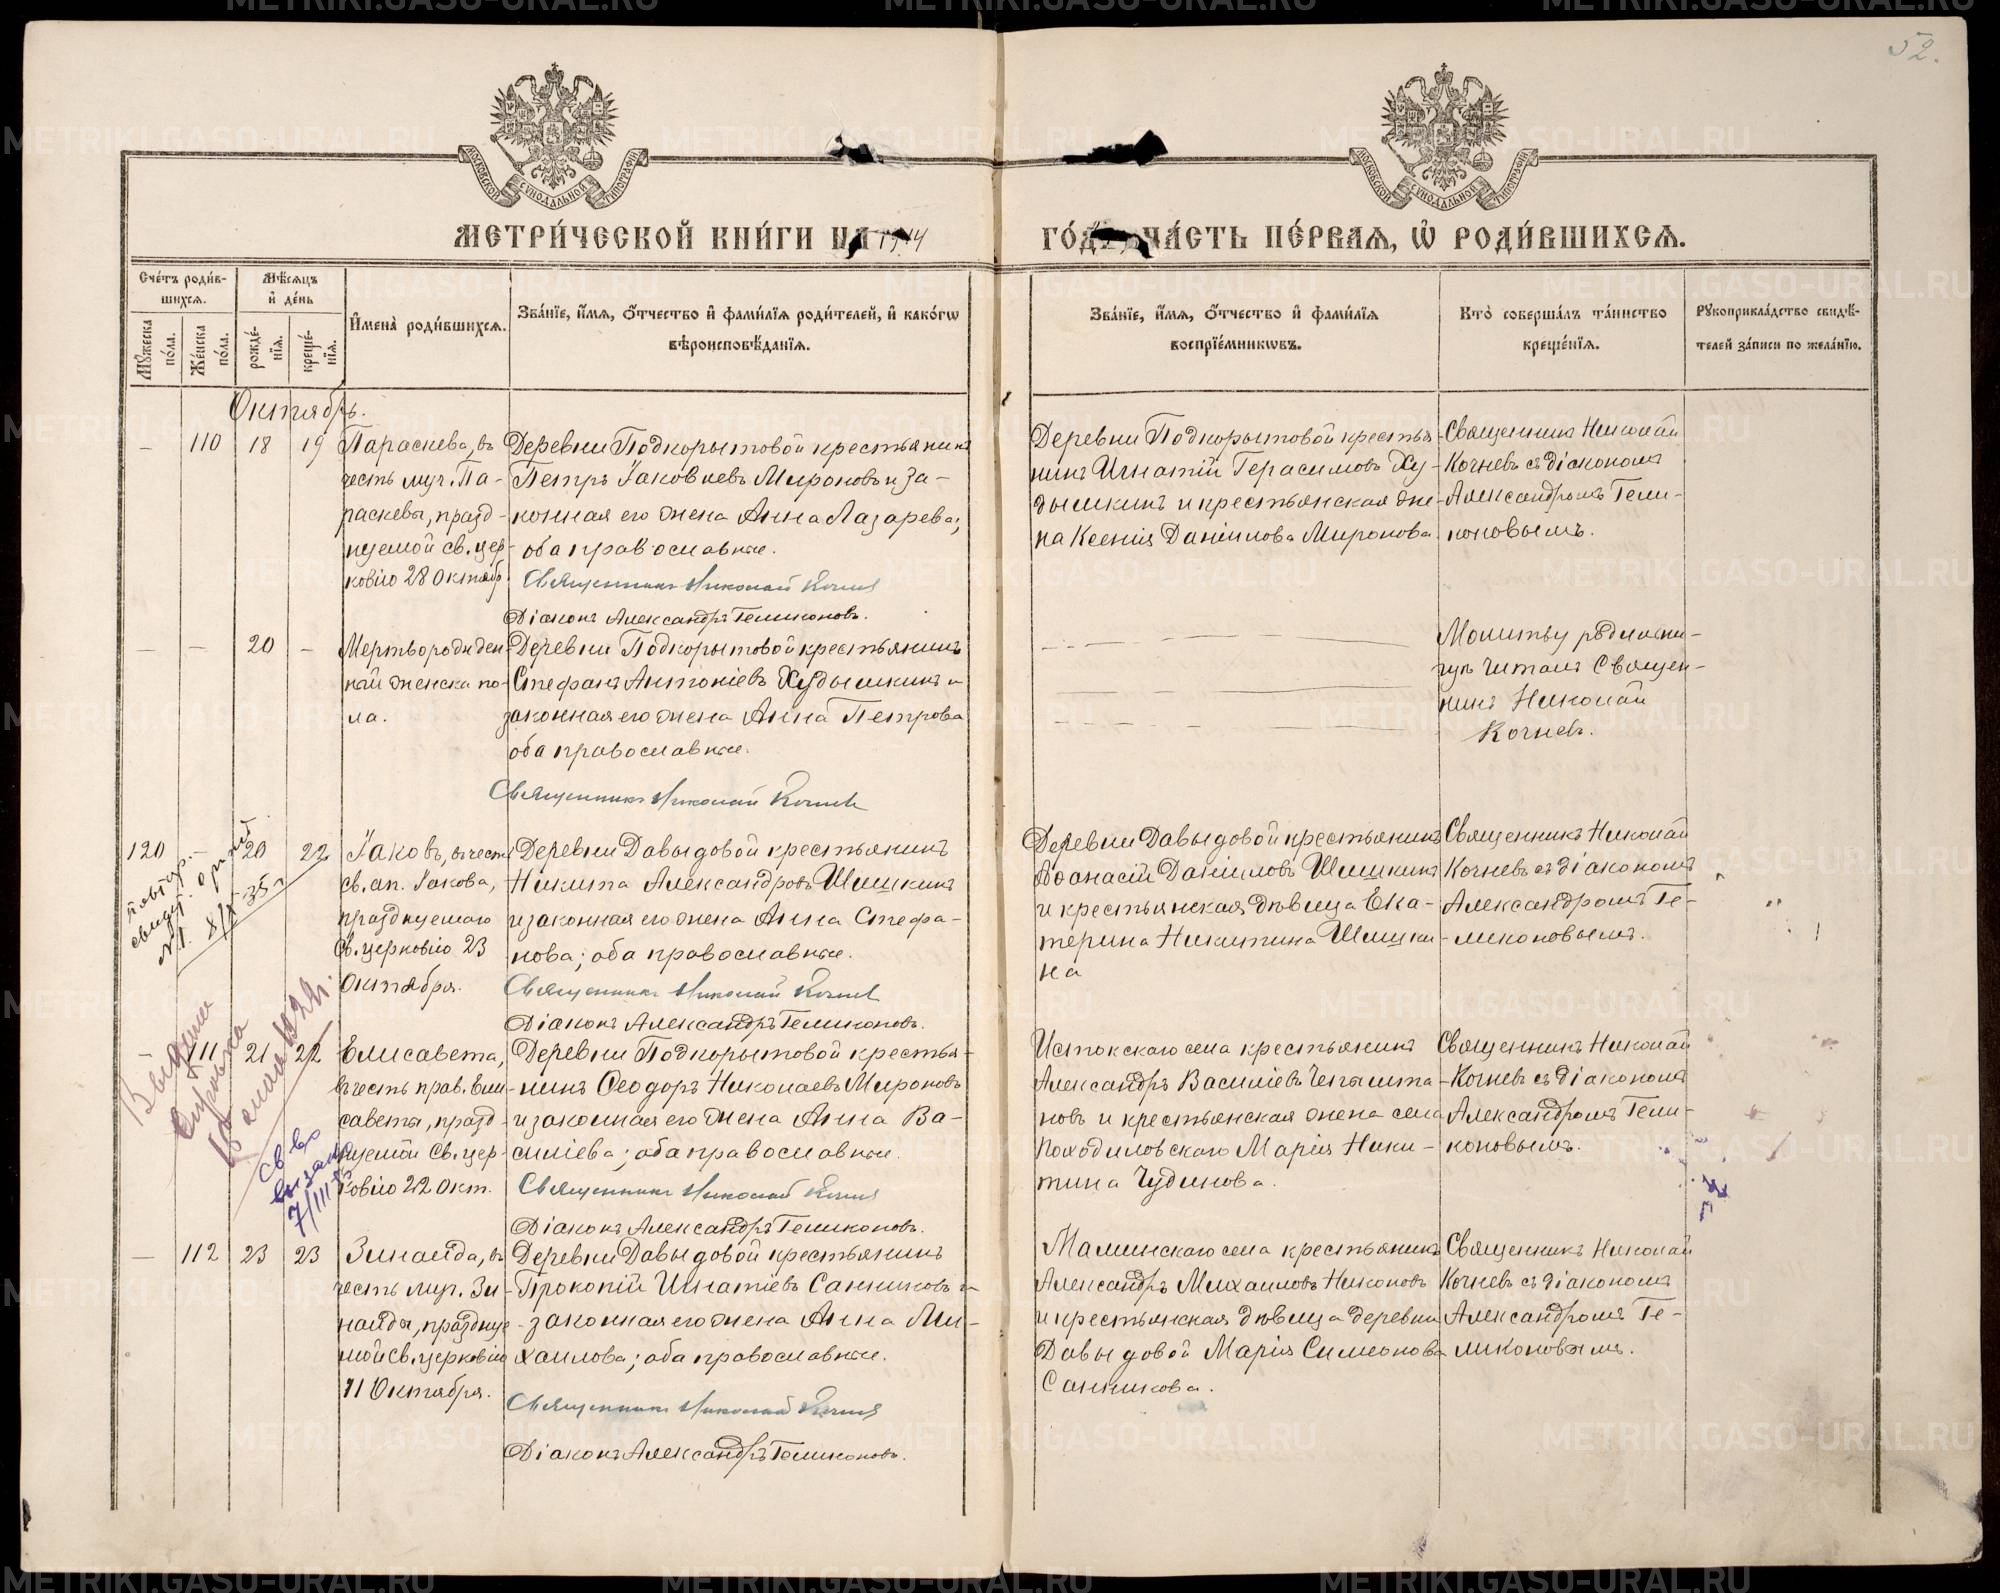 52.
МОСКОВСКОЙ СУНОДАЛЬНОЙ ТИПОГРАФІИ
МОСКОВСКОЙ СУНОДАЛЬНОЙ ТИПОГРАФІИ
МЕТРИ́ЧЕСКОЙ КНИ́ГИ НА 1914
ГО́ДЪ, ЧА́СТЬ ПЕ́РВАЯ, Ѡ҆ РОДИ́ВШИХСЯ.
Сче́тъ роди́в-
шихся.
Мѣ́сяцъ
и҆ де́нь
Мꙋ́жеска по́ла.
Же́нска по́ла.
рожде́-нїя.
креще́-нїя.
И҆мена̀ роди́вшихся.
Зва́нїе, и҆́мя, ѻ҆́тчество и҆ фами́лїя роди́телей, и҆ како́гѡ
вѣроисповѣ́данїя.
Зва́нїе, и҆́мя, ѻ҆́тчество и҆ фами́лїя
воспрїе́мникѡвъ.
Кто̀ соверша́лъ та́инство
креще́нїя.
Рꙋкоприкла́дство свидѣ́-
телей за́писи по жела́нїю.
Октябрь.
— 110 18 19
Параскева, въ
честь муч. Па-
раскевы, празд-
нуемой св. цер-
ковію 28 Октябр.
Деревни Подкорытовой крестьянинъ
Петръ Іаковлевъ Мироновъ и за-
конная его жена Анна Лазарева;
оба православные.
Священникъ Николай Кочнев
Діаконъ Александръ Геликоновъ.
Деревни Подкорытовой крестья-
нинъ Игнатій Герасимовъ Ху-
дышкинъ и крестьянская же-
на Ксенія Даніилова Миронова
Священникъ Николай
Кочневъ съ діакономъ
Александромъ Гели-
коновымъ.
— — 20 —
Мертворожден-
ный женска по-
ла.
Деревни Подкорытовой крестьянинъ
Стефанъ Антоніевъ Худышкинъ и
законная его жена Анна Петрова
оба православные.
Священникъ Николай Кочнев
Молитву родильни-
цѣ читалъ Священ-
никъ Николай
Кочневъ.
120 — 20 22
Іаковъ, въ честь
св. ап. Іакова,
празднуемаго
Св. церковію 23
Октября.
Деревни Давыдовой крестьянинъ
Никита Александровъ Шишкинъ
и законная его жена Анна Стефа-
нова; оба православные.
Священникъ Николай Кочнев
Діаконъ Александръ Геликоновъ.
Деревни Давыдовой крестьянинъ
Аѳанасій Даніиловъ Шишкинъ
и крестьянская дѣвица Ека-
терина Никитина Шишки-
на
Священникъ Николай
Кочневъ съ діакономъ
Александромъ Ге-
ликоновымъ.
повтор.
Выдана
справка
— 111 21 22
Елисавета,
въ честь прав. Ели-
саветы, празд-
нуемой Св. цер-
ковію 22 Окт.
Деревни Подкорытовой крестья-
нинъ Ѳеодоръ Николаевъ Мироновъ
и законная его жена Анна Ва-
силіева; оба православные.
Священникъ Николай Кочнев
Діаконъ Александръ Геликоновъ.
Истокскаго села крестьянинъ
Александръ Василіевъ Чепышта-
новъ и крестьянская жена села
Походиловскаго Марія Ники-
тина Чудинова.
Священникъ Николай
Кочневъ съ діакономъ
Александромъ Гели-
коновымъ.
— 112 23 23
Зинаида, въ
честь муч. Зи-
наиды, праздные-
мой Св. церковію
11 Октября.
Деревни Давыдовой крестьянинъ
Прокопій Игнатіевъ Санниковъ и
законная его жена Анна Ми-
хаилова; оба православные.
Священникъ Николай Кочнев
Діаконъ Александръ Геликоновъ.
Маминскаго села крестьянинъ
Александръ Михаиловъ Никоновъ
и крестьянская дѣвица деревни
Давыдовой Марія Симеонова
Санникова.
Священникъ Николай
Кочневъ съ діакономъ
Александромъ Ге-
ликоновымъ.
METRIKI.GASO-URAL.RU